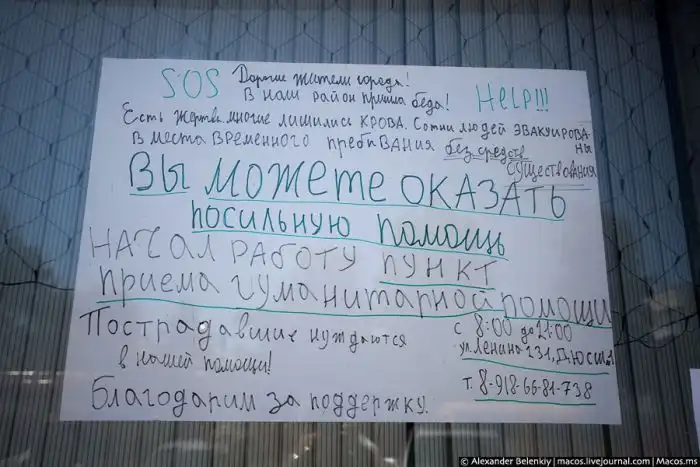 SOS Дорогие жители города! HELP!!!
В наш район пришла беда!
Есть жертвы, многие лишились КРОВА. Сотни людей ЭВАКУИРОВАНЫ
В места ВРЕМЕННОГО пребывания без средств
существования
ВЫ МОЖЕТЕ ОКАЗАТЬ
ПОСИЛЬНУЮ ПОМОЩЬ
НАЧАЛ РАБОТУ ПУНКТ
ПРИЕМА ГУМАНИТАРНОЙ ПОМОЩИ
Пострадавшие нуждаются
в нашей помощи!
с 8:00 до 21:00
ул Ленина 231, ДЮСШ 1
т. 8-918-66-81-738
Благодарим за поддержку.
© Alexander Belenkiy | macos.livejournal.com | Macos.ms